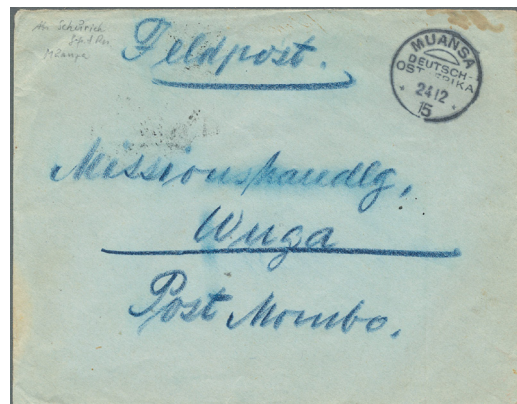 Abs. Scheurich
Muanza
Feldpost.
MUANSA
DEUTSCH-
OSTAFRIKA
24 12
15
Missionshandlg,
Wuga
Post Mombo.